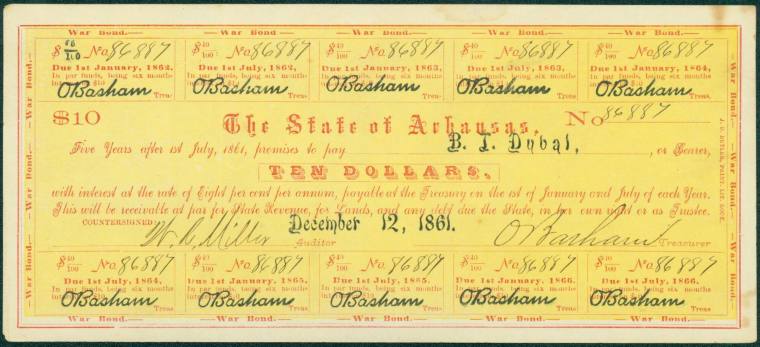 War Bond.— —War Bond.— —War Bond.— —War Bond.— —War Bond.—
$ 66/100 No. 86887 $40/100 No. 86887 $40/100 No. 86887 $40/100 No. 86887 $40/100 No. 86887
Due 1st January, 1862, Due 1st July, 1862, Due 1st January, 1863, Due 1st July, 1863, Due 1st January, 1864,
In par funds, being six months In par funds, being six months In par funds, being six months In par funds, being six months In par funds, being six months
O Basham Treas. O Basham Treas. O Basham Treas. O Basham Treas. O Basham Treas.
$10 The State of Arkansas, No 86887
Five Years after 1st July, 1861, promises to pay B. T. Duval, or Bearer,
TEN DOLLARS,
with interest at the rate of Eight per cent per annum, payable at the Treasury on the 1st of January and July of each Year.
This will be receivable at par for State Revenue, for Lands, and any debt due the State, in her own right or as Trustee.
COUNTERSIGNED December 12, 1861.
W. R. Miller Auditor O Basham Treasurer
$40/100 No. 86887 $40/100 No. 86887 $40/100 No. 86887 $40/100 No. 86887 $40/100 No. 86887
Due 1st July, 1864, Due 1st January, 1865, Due 1st July, 1865, Due 1st January, 1866, Due 1st July, 1866,
In par funds, being six months In par funds, being six months In par funds, being six months In par funds, being six months In par funds, being six months
O Basham Treas. O Basham Treas. O Basham Treas. O Basham Treas. O Basham Treas.
War Bond.— —War Bond.— —War Bond.— —War Bond.— —War Bond.—
—War Bond.— —War Bond.— —War Bond.—
—War Bond.— —War Bond.—
J. D. BUTLER, PRINT. LIT. ROCK.